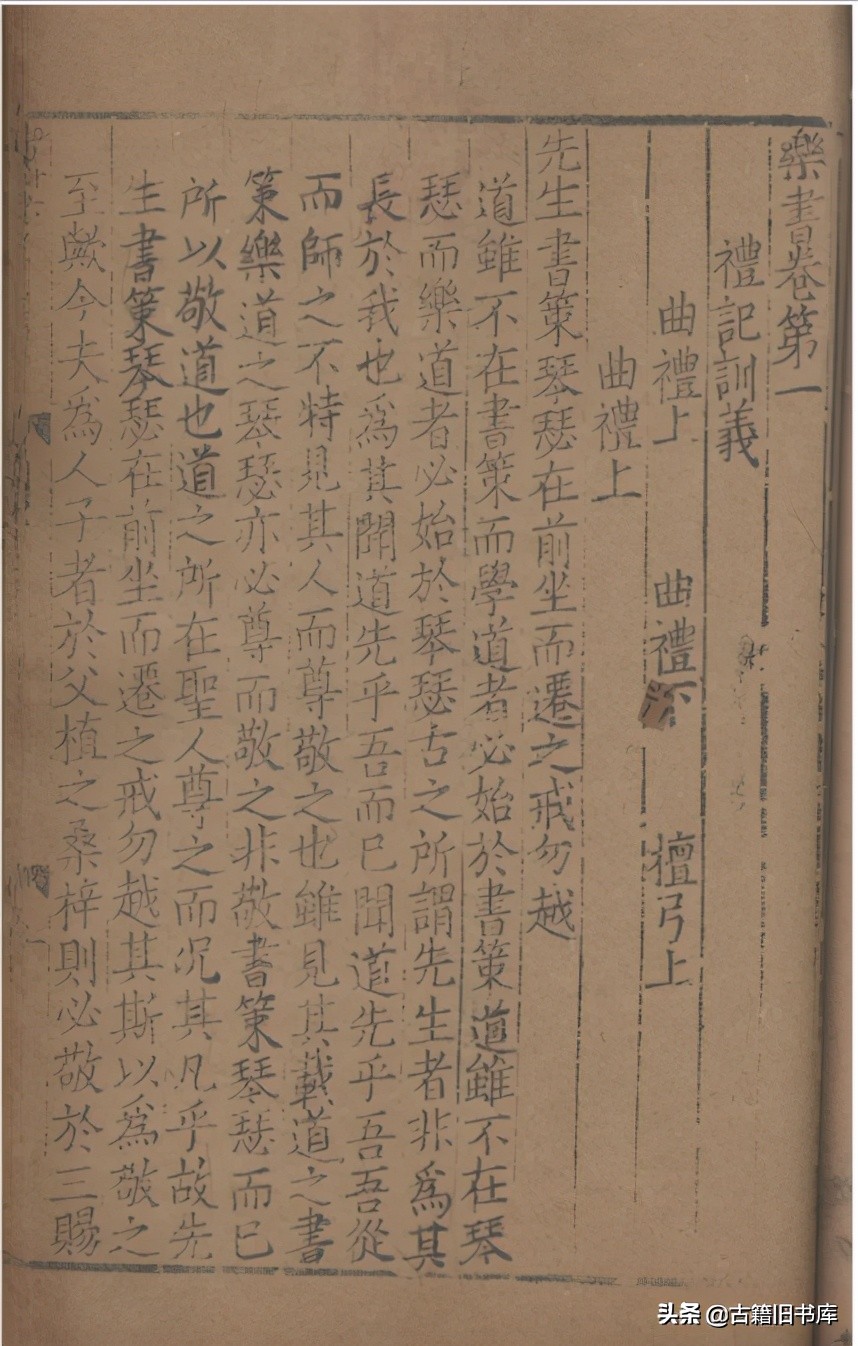 樂書卷第一
禮記訓義
曲禮上　曲禮下　檀弓上
曲禮上
先生書策琴瑟在前坐而遷之戒勿越
道雖不在書策而學道者必始於書策道雖不在琴
瑟而樂道者必始於琴瑟古之所謂先生者非為其
長於我也為其聞道先乎吾而已聞道先乎吾吾從
而師之不特見其人而尊敬之也雖見其載道之書
策樂道之琴瑟亦必尊而敬之非敬書策琴瑟而已
所以敬道也道之所在聖人尊之而况其凡乎故先
生書策琴瑟在前坐而遷之戒勿越其斯以為敬之
至歟今夫為人子者於父植之桑梓則必敬於三賜
头条 @古籍旧书库